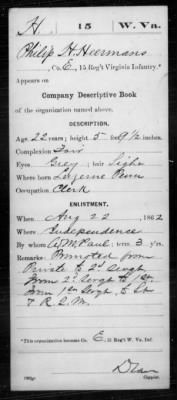 H | 15 | W. Va.
Philip H. Heermans
, Co. E, 15 Reg't Virginia Infantry.*
Appears on
Company Descriptive Book
of the organization named above.
DESCRIPTION.
Age 22 years; height 5 feet 9 1/2 inches.
Complexion Fair
Eyes Grey; hair Light
Where born Luzerne Penn
Occupation Clerk
ENLISTMENT.
When Aug 22, 1862
Where Independence
By whom A. M. Paul; term 3 y'rs.
Remarks: Promoted from
Private to 2" Sergt
from 2" Sergt to 1st
from 1st Sergt to Lt
& R. Q. M.
*This organization became Co. E, 15 Reg't W. Va. Inf.
Dean
Copyist.